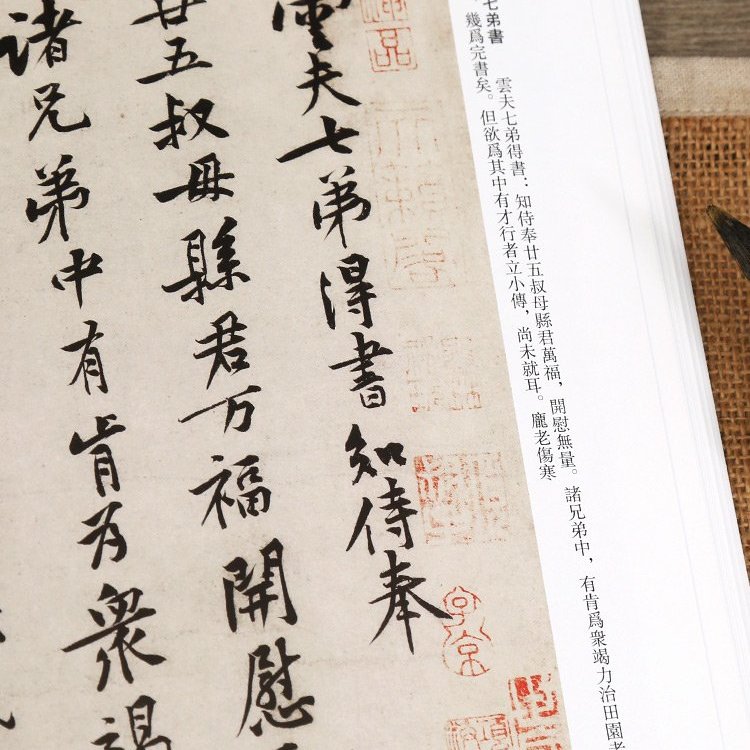 七弟書 雲夫七弟得書：知侍奉廿五叔母縣君萬福，開慰無量。諸兄弟中，有肯爲衆竭力治田園者
幾爲完書矣。但欲爲其中有才行者立小傳，尚未就耳。龐老傷寒
雲夫七弟得書知侍奉
廿五叔母縣君万福開慰
諸兄弟中有肯为衆竭
子京